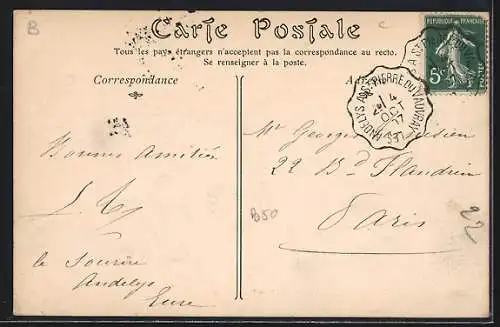 B
C
Carte Postale
Tous les pays étrangers n'acceptent pas la correspondance au recto.
Se renseigner à la poste.
Correspondance
RÉPUBLIQUE FRANÇAISE
5c
LES ANDELYS A ST PIERRE DU VAUVRAY
4
OCT
07
Bonnes Amitiés
le Sourire
Andelys
Eure
Mr Georges
22 Bd Flandrin
Paris
B50
22